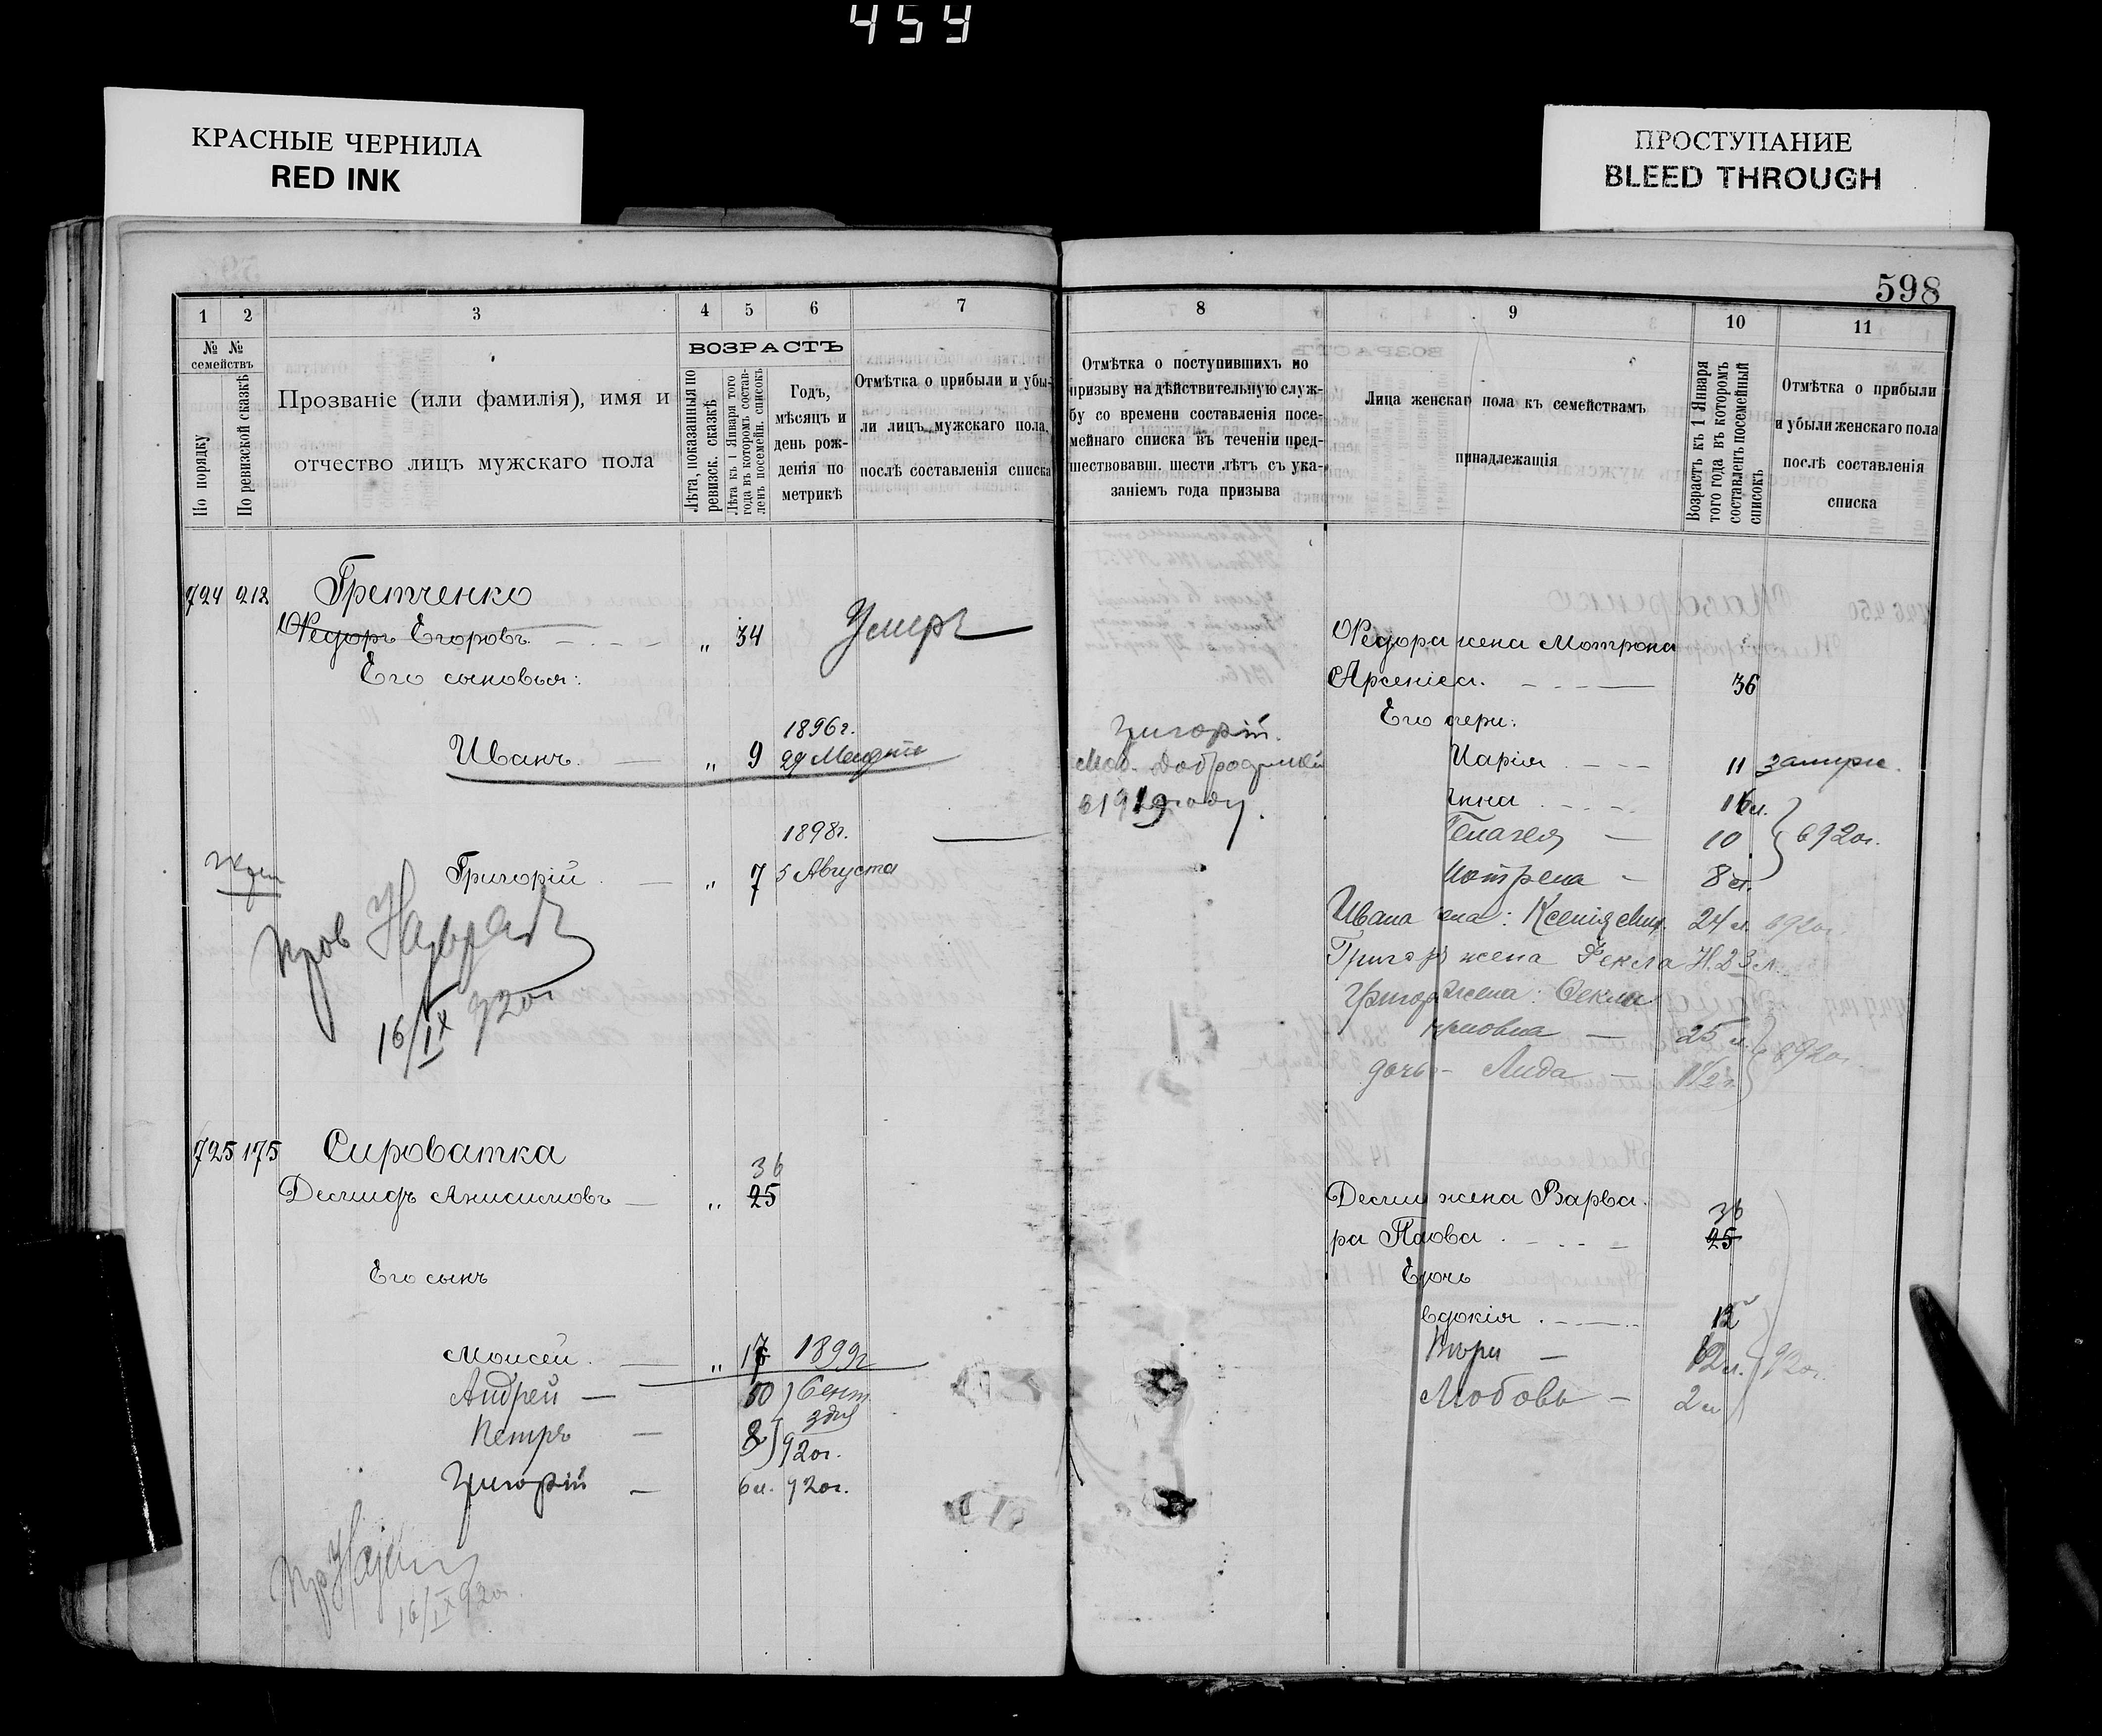 459
КРАСНЫЕ ЧЕРНИЛА
RED INK
ПРОСТУПАНИЕ
BLEED THROUGH
598
1 2 3 4 5 6 7
№ № семействъ
По порядку
По ревизской сказкѣ
Прозваніе (или фамилія), имя и
отчество лицъ мужскаго пола
ВОЗРАСТЪ
Лѣта, показанныя по
ревизск. сказкѣ
Лѣта къ 1 Января того
года въ которомъ состав-
ленъ посемейн. списокъ
Годъ,
мѣсяцъ и
день рож-
денія по
метрикѣ
Отмѣтка о прибыли и убы-
ли лицъ мужскаго пола,
послѣ составленія списка
724 212 Гретченко
Ѳедоръ Егоровъ „ 34 Умеръ
Его сыновья:
1896г.
Иванъ. „ 9 29
1898г.
Григорій „ 7 5 Августа
16/IX 920г
725 175 Сироватка
36
Демидъ Анисимовъ „ 25
Его сынъ
Моисей. „ 1899г
Андрей — 10 Сент.
Петръ — 8 920г.
Григорій — 6л. 920г.
16/IX 920г.
8 9 10 11
Отмѣтка о поступившихъ по
призыву на дѣйствительную служ-
бу со времени составленія посе-
мейнаго списка въ теченіи пред-
шествовавш. шести лѣтъ съ ука-
заніемъ года призыва
Лица женскаг пола къ семействамъ
принадлежащія
Возрастъ къ 1 Января
того года въ которомъ
составленъ посемейный
списокъ
Отмѣтка о прибыли
и убыли женскаго пола
послѣ составленія
списка
Григорій.
Моб.
в 1919 году.
Ѳедора жена Мотрона
Арсеніев. 36
Его чери:
Марія 11 замуж.
нна 16л.
Пелагея — 10 920г.
Мотрена — 8 л.
Ивана ена: Ксенія 24 л 920г.
Григор жена Фекла Н. 23 л.
Григор жена: Фекла
— 25 л. 920г.
дочь — Лида — 1 1/2 г.
Деми жена Варва-
36
ра 25
Е очь
вдокія 12
Вѣра — 12л. 920г.
Любовь — 2 л